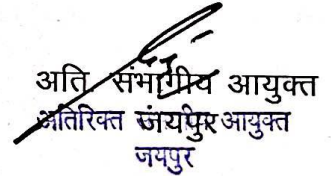 अति. संभागीय आयुक्त
अतिरिक्त जयपुर आयुक्त
जयपुर